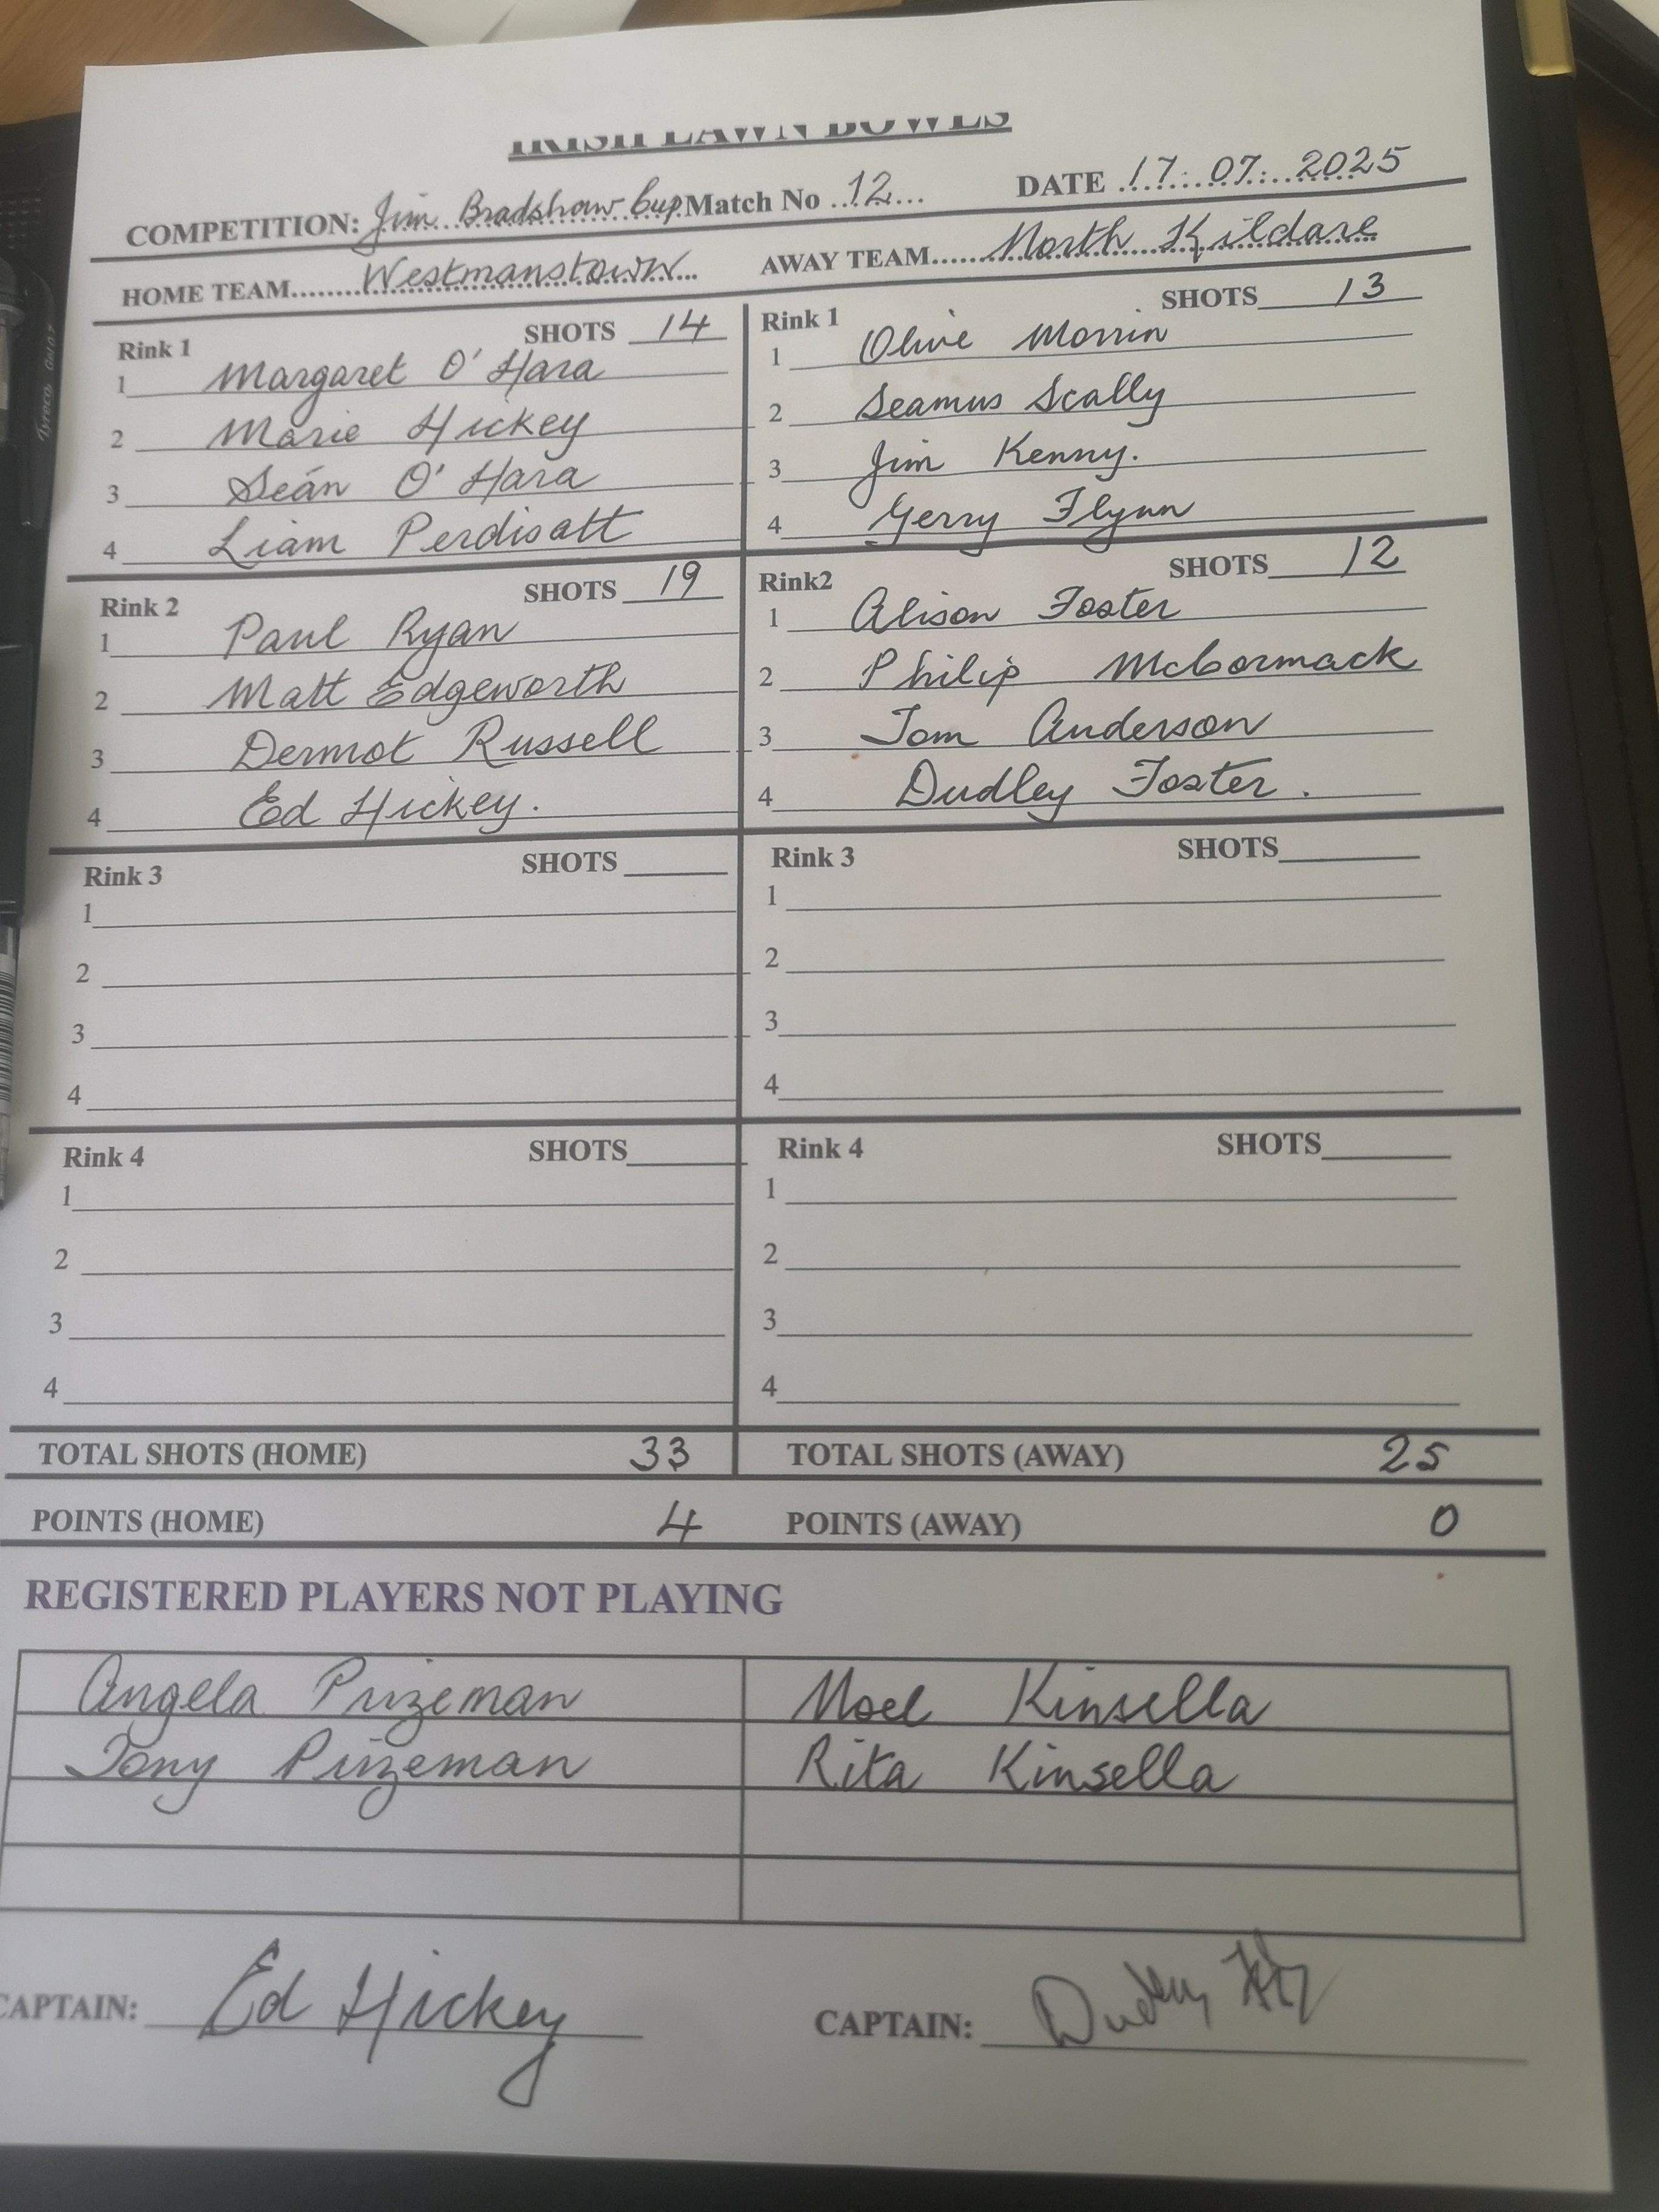 IRISH LAWN BOWLS
COMPETITION: Jim Bradshaw Cup Match No 12 DATE 17. 07. 2025
HOME TEAM Westmanstown AWAY TEAM North Kildare
Rink 1 SHOTS 14
1 Margaret O'Hara
2 Marie Hickey
3 Seán O'Hara
4 Liam Perdisatt
Rink 1 SHOTS 13
1 Olive Morrin
2 Seamus Scally
3 Jim Kenny.
4 Gerry Flynn
Rink 2 SHOTS 19
1 Paul Ryan
2 Matt Edgeworth
3 Dermot Russell
4 Ed Hickey.
Rink2 SHOTS 12
1 Alison Foster
2 Philip McCormack
3 Tom Anderson
4 Dudley Foster.
Rink 3 SHOTS
1
2
3
4
Rink 3 SHOTS
1
2
3
4
Rink 4 SHOTS
1
2
3
4
Rink 4 SHOTS
1
2
3
4
TOTAL SHOTS (HOME) 33 TOTAL SHOTS (AWAY) 25
POINTS (HOME) 4 POINTS (AWAY) 0
REGISTERED PLAYERS NOT PLAYING
Angela Prizeman Noel Kinsella
Tony Prizeman Rita Kinsella
CAPTAIN: Ed Hickey CAPTAIN: Dudley